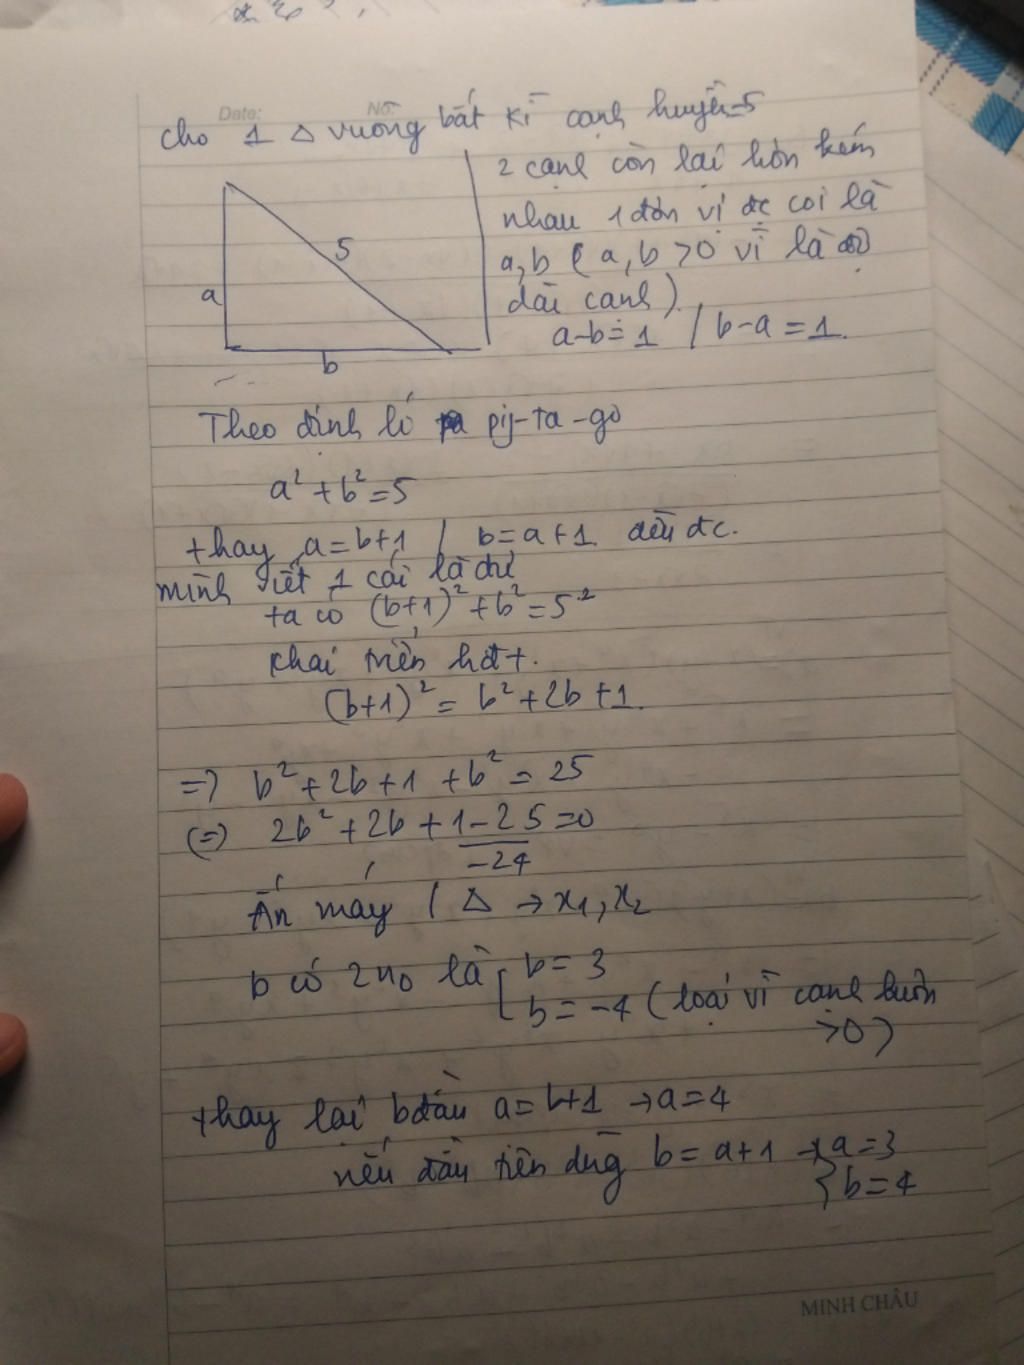 Date:
No:
cho 1 Δ vuông bất kì cạnh huyền=5
2 cạnh còn lại hơn kém
nhau 1 đơn vị đc coi là
a,b ( a,b >0 vì là độ
dài cạnh)
a-b=1 / b-a=1.
5
a
b
Theo định lí py-ta-go
a²+b²=5
+hay a=b+1 / b=a+1. đều đc.
mình viết 1 cái là đủ
ta có (b+1)²+b²=5²
khai triển hđt.
(b+1)² = b²+2b+1.
=> b²+2b+1 +b² = 25
(=) 2b²+2b+1-25=0
-24
Ấn máy / Δ → x₁,x₂
b có 2 n₀ là [ b=3
b=-4 (loại vì cạnh luôn
>0)
+hay lại b đầu a=b+1 → a=4
nếu đầu tiên dùng b=a+1 → { a=3
b=4
MINH CHÂU